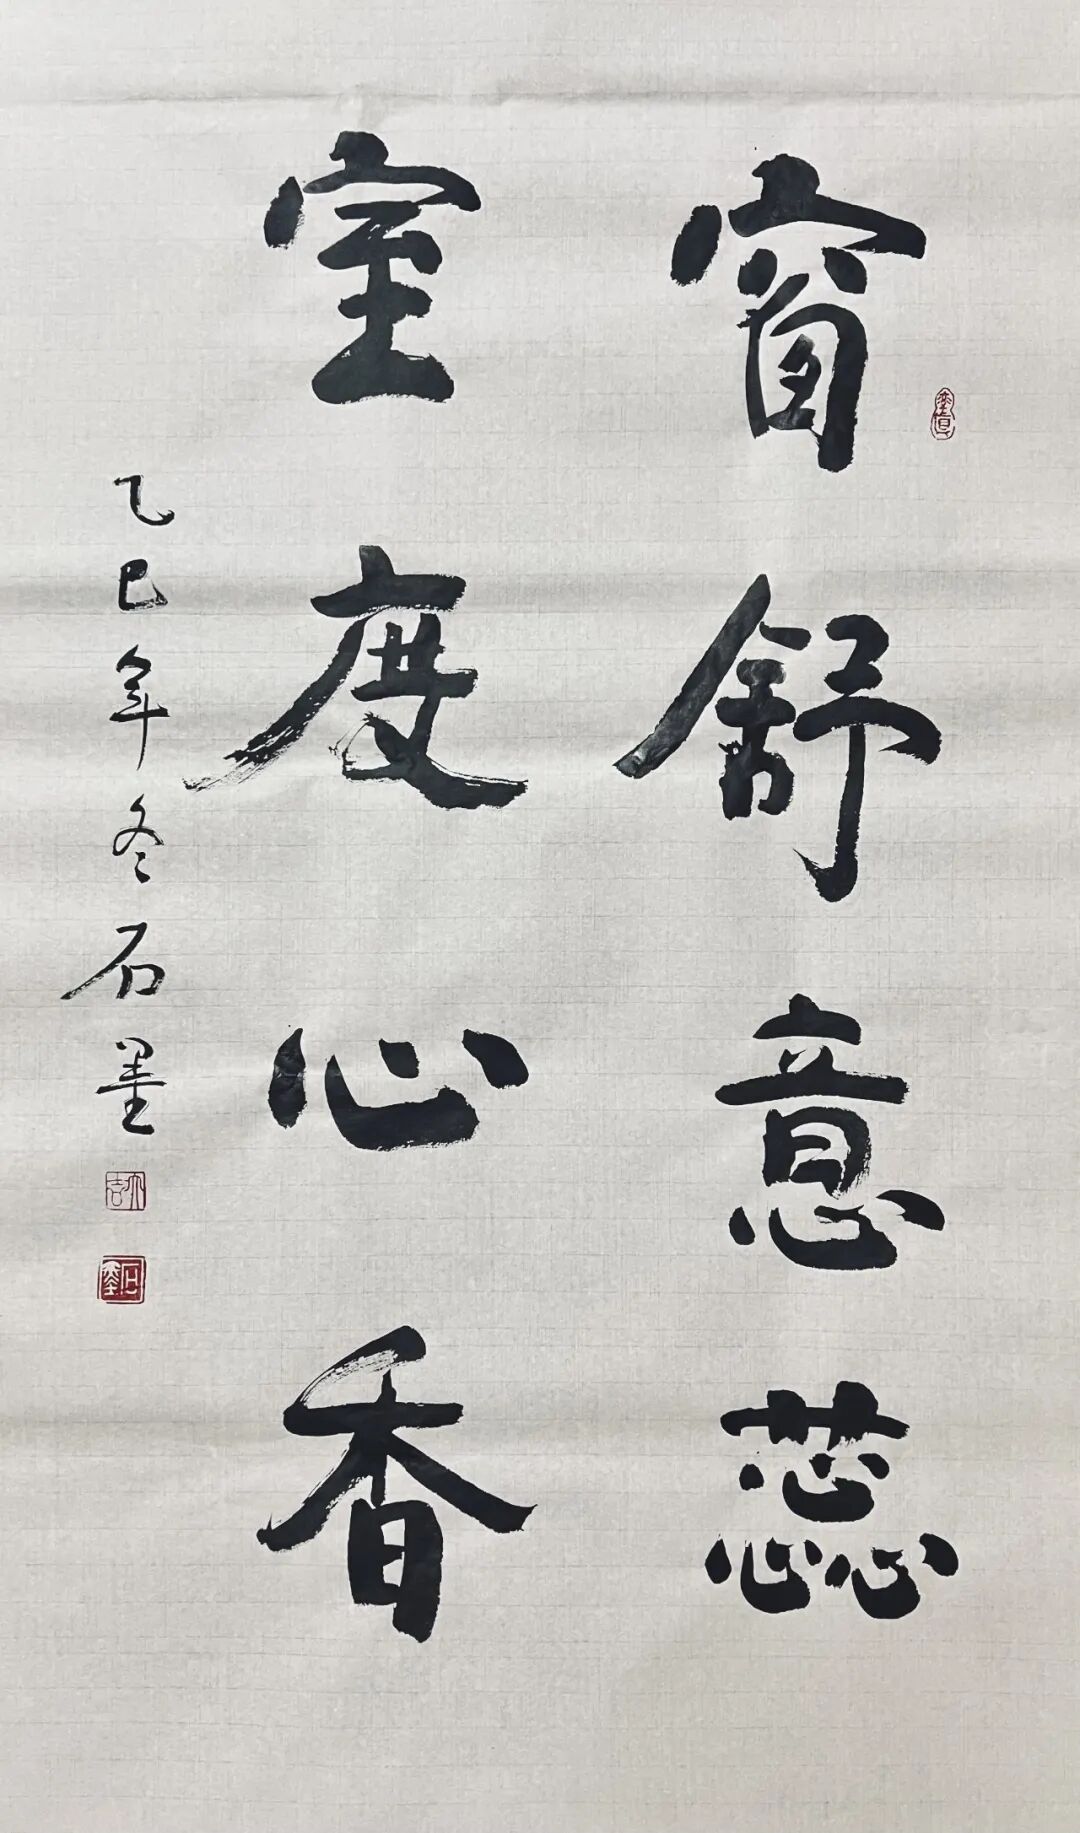 窗舒意蕊
室度心香
乙巳年冬石墨
石墨